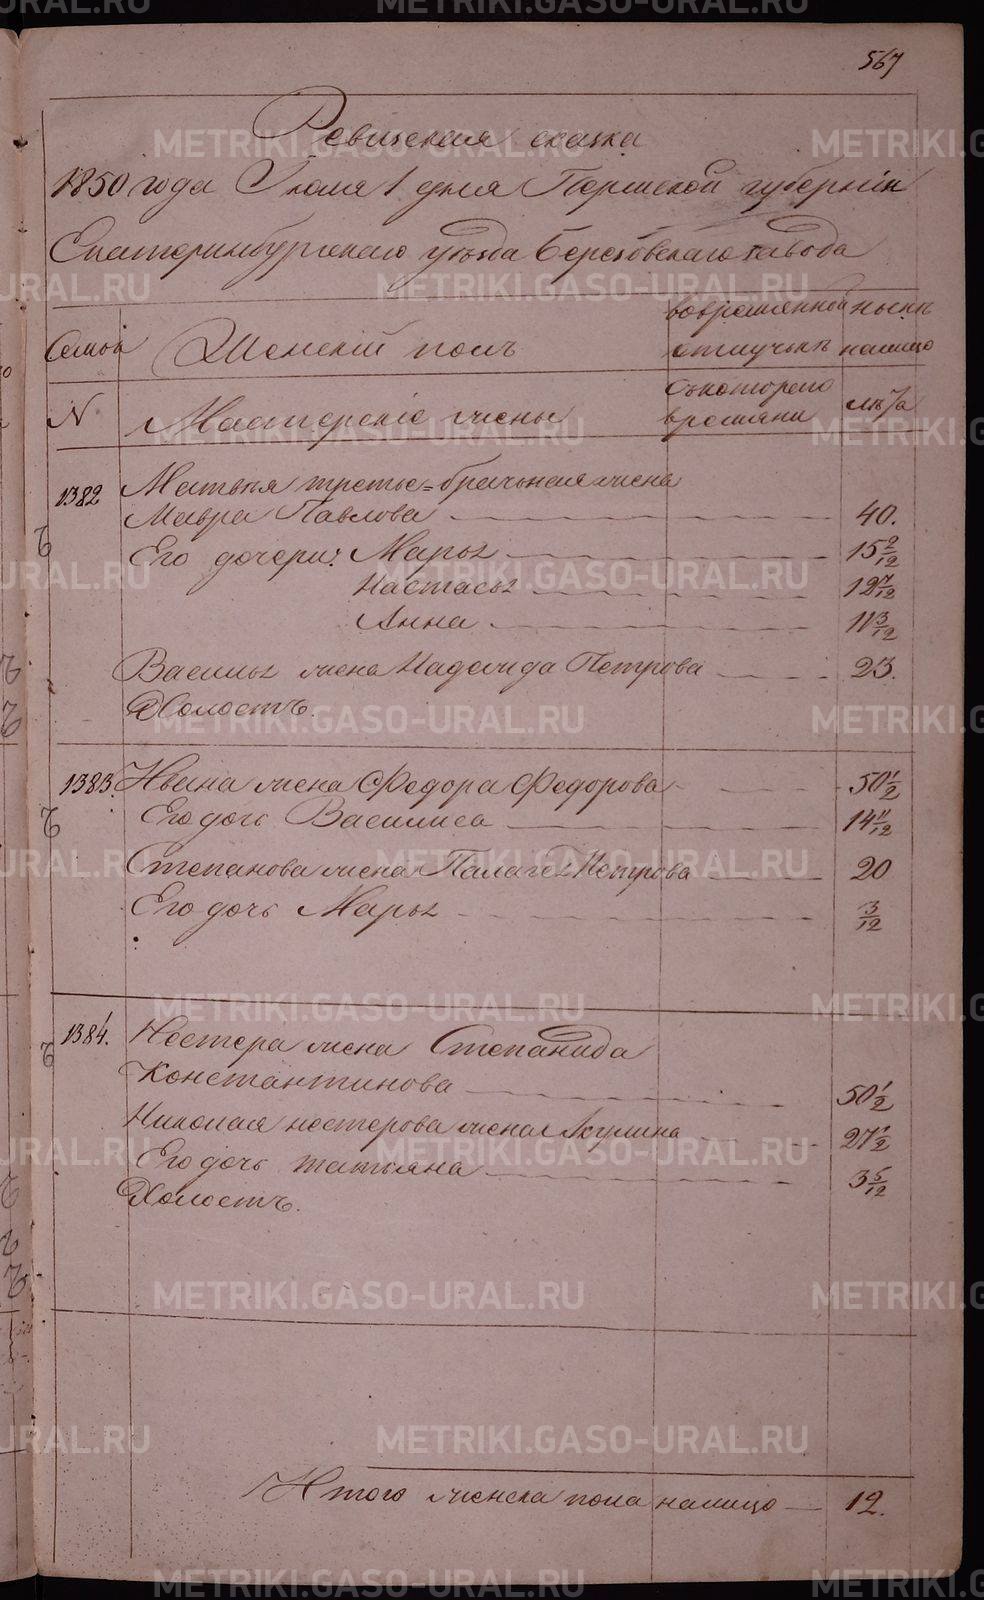 567
Ревижская сказка
1850 года Июля 1 дня Пермской губернiи
Екатеринбургскаго уѣзда Березовскаго завода
Семьи
Женскiй полъ
вовремянной отлучькѣ
нынѣ налицо
N
Мастерскiе жены
съкоторого времяни
лѣта
1382
Матвея третье=брачьная жена
Мавра Павлова — 40.
Его дочери: Марья — 15 2/12
Настасья — 12 7/12
Анна — 11 3/12
Василья жена Надежда Петрова — 23.
Холостъ.
1383. Ивана жена Федора Федорова — 50 1/2
Его дочь Василиса — 14 11/12
Степанова жена Палагея Петрова — 20
Его дочь Марья — 3/12
1384. Нестера жена Степанида
Константинова — 50 1/2
Николая нестерова жена Акулина — 27 1/2
Его дочь татьяна — 3 5/12
Холостъ.
Итого женска пола налицо — 12.
METRIKI.GASO-URAL.RU